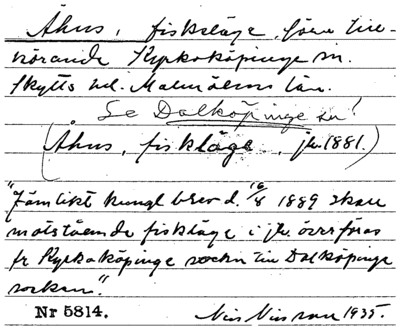 Åhus, fiskläge, förr till-
hörande Kyrkoköpinge sn.
Skytts hd. Malmöhus län.
Se Dalköpinge sn!
(Åhus, fiskläge, jb. 1881.)
"Jämlikt kungl brev d. 16/8 1889 skall
motstående fiskläge i jb. överföras
fr Kyrkoköpinge socken till Dalköpinge
socken."
Nr 5814. Nils Nilsson 1935.